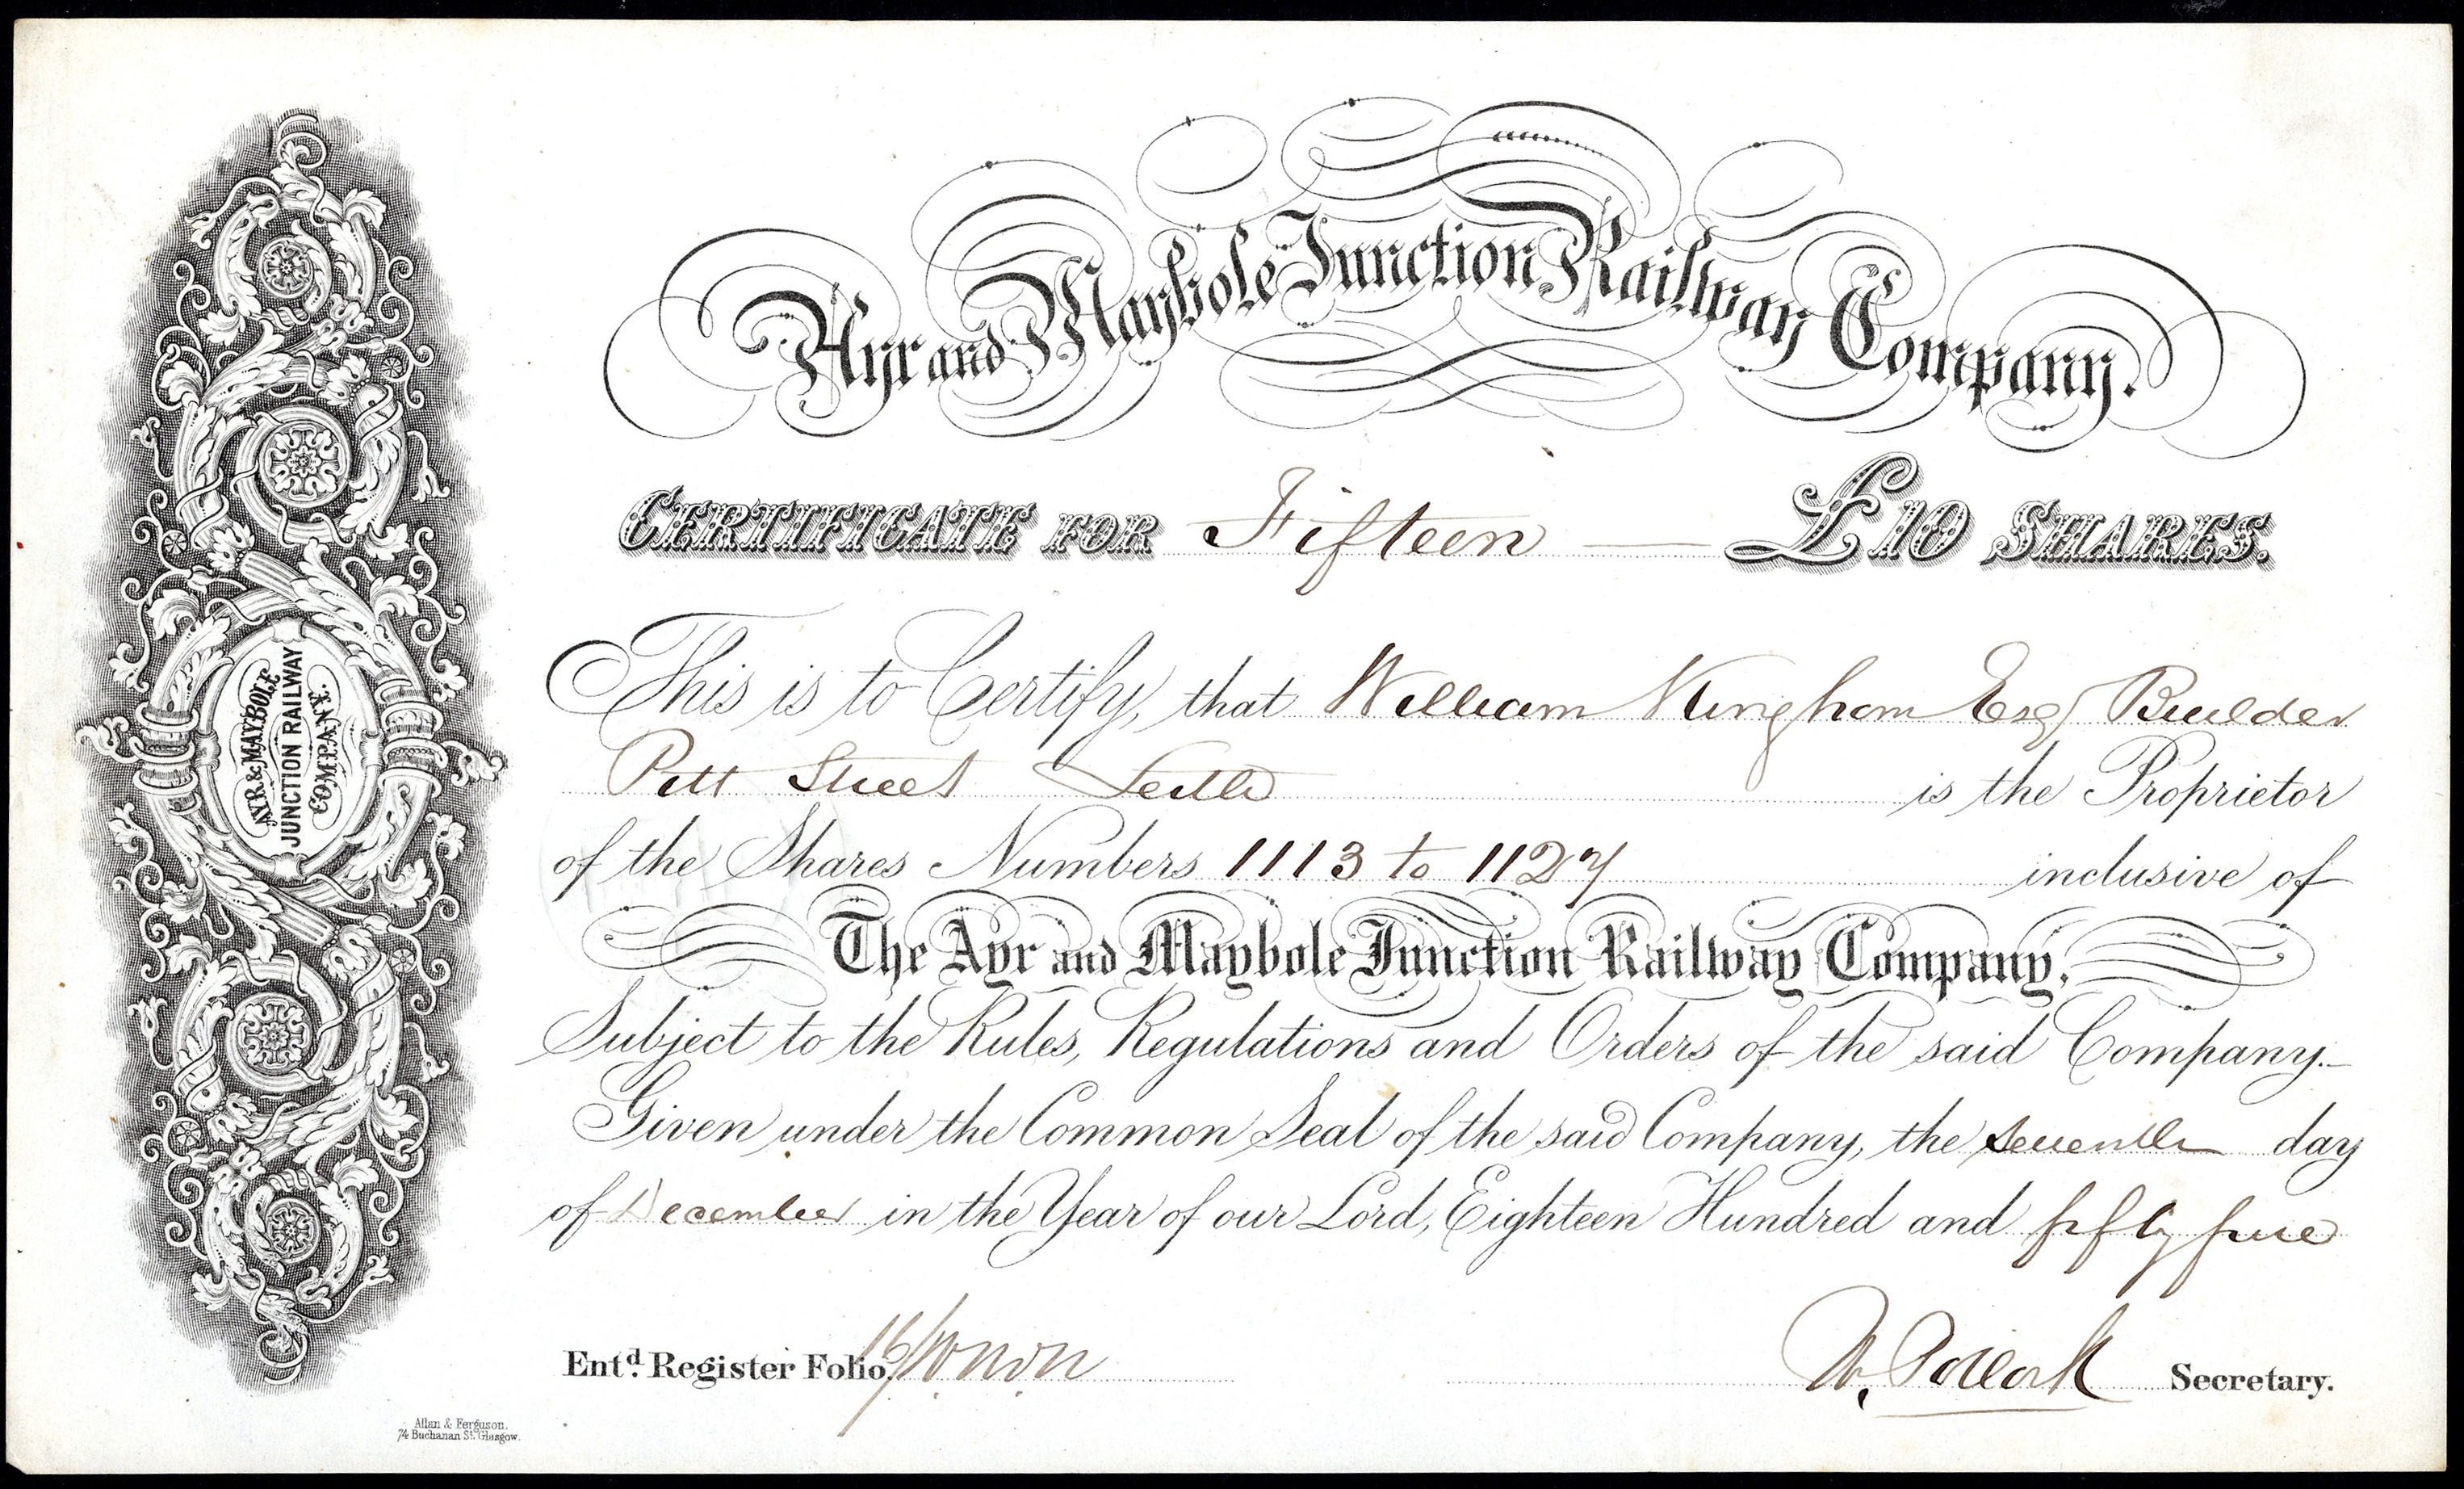 Ayr and Maybole Junction Railway Company.
CERTIFICATE FOR Fifteen — £10 SHARES.
This is to Certify, that William Kingham Esq Builder
Pitt Street Leith is the Proprietor
of the Shares Numbers 1113 to 1127 inclusive of
The Ayr and Maybole Junction Railway Company,
Subject to the Rules, Regulations and Orders of the said Company.
Given under the Common Seal of the said Company, the seventh day
of December in the Year of our Lord, Eighteen Hundred and fifty five
Entd. Register Folio
W. Pollock Secretary.
Allan & Ferguson.
74 Buchanan St. Glasgow.
AYR & MAYBOLE
JUNCTION RAILWAY
COMPANY.